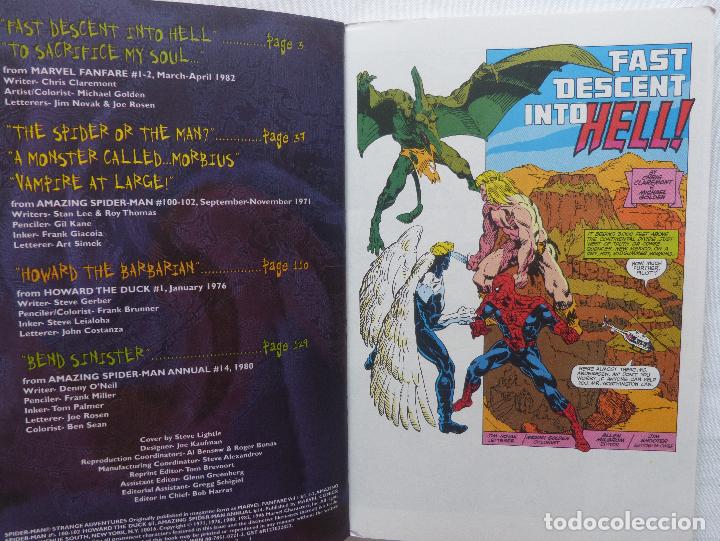 "FAST DESCENT INTO HELL" .............. Page 3
"TO SACRIFICE MY SOUL..."
from MARVEL FANFARE #1-2, March-April 1982
Writer- Chris Claremont
Artist/Colorist- Michael Golden
Letterers- Jim Novak & Joe Rosen
"THE SPIDER OR THE MAN?" .............. Page 37
"A MONSTER CALLED...MORBIUS"
"VAMPIRE AT LARGE!"
from AMAZING SPIDER-MAN #100-102, September-November 1971
Writers- Stan Lee & Roy Thomas
Penciler- Gil Kane
Inker- Frank Giacoia
Letterer- Art Simek
"HOWARD THE BARBARIAN" .............. Page 110
from HOWARD THE DUCK #1, January 1976
Writer- Steve Gerber
Penciler/Colorist- Frank Brunner
Inker- Steve Leialoha
Letterer- John Costanza
"BEND SINISTER" .............. Page 129
from AMAZING SPIDER-MAN ANNUAL #14, 1980
Writer- Denny O'Neil
Penciler- Frank Miller
Inker- Tom Palmer
Letterer- Joe Rosen
Colorist- Ben Sean
Cover by Steve Lightle
Designer- Joe Kaufman
Reproduction Coordinators- Al Bensew & Roger Bonas
Manufacturing Coordinator- Steve Alexandrov
Reprint Editor- Tom Brevoort
Assistant Editor- Glenn Greenberg
Editorial Assistant- Gregg Schigiel
Editor in Chief- Bob Harras
SPIDER-MAN® STRANGE ADVENTURES Originally published in magazine form as MARVEL FANFARE
FAST
DESCENT
INTO HELL!
BY
CHRIS
CLAREMONT
&
MICHAEL
GOLDEN
IT BEGINS 5000 FEET ABOVE
THE CONTINENTAL DIVIDE JUST
WEST OF TRUTH OR CONSE-
QUENCES NEW MEXICO, ON A
DRY, HOT,
MORNING.
HOW MUCH
FURTHER,
PILOT?
WE'RE ALMOST THERE, MS.
ANDERSSEN. AN' DON'T YOU
WORRY, IF ANYONE CAN HELP
YOU, MR. WORTHINGTON CAN.
JIM NOVAK
LETTERER
MICHAEL GOLDEN
COLORIST
ALLEN
MILGROM
EDITOR
JIM
SHOOTER
EDITOR-IN-CHIEF
todocoleccion.net